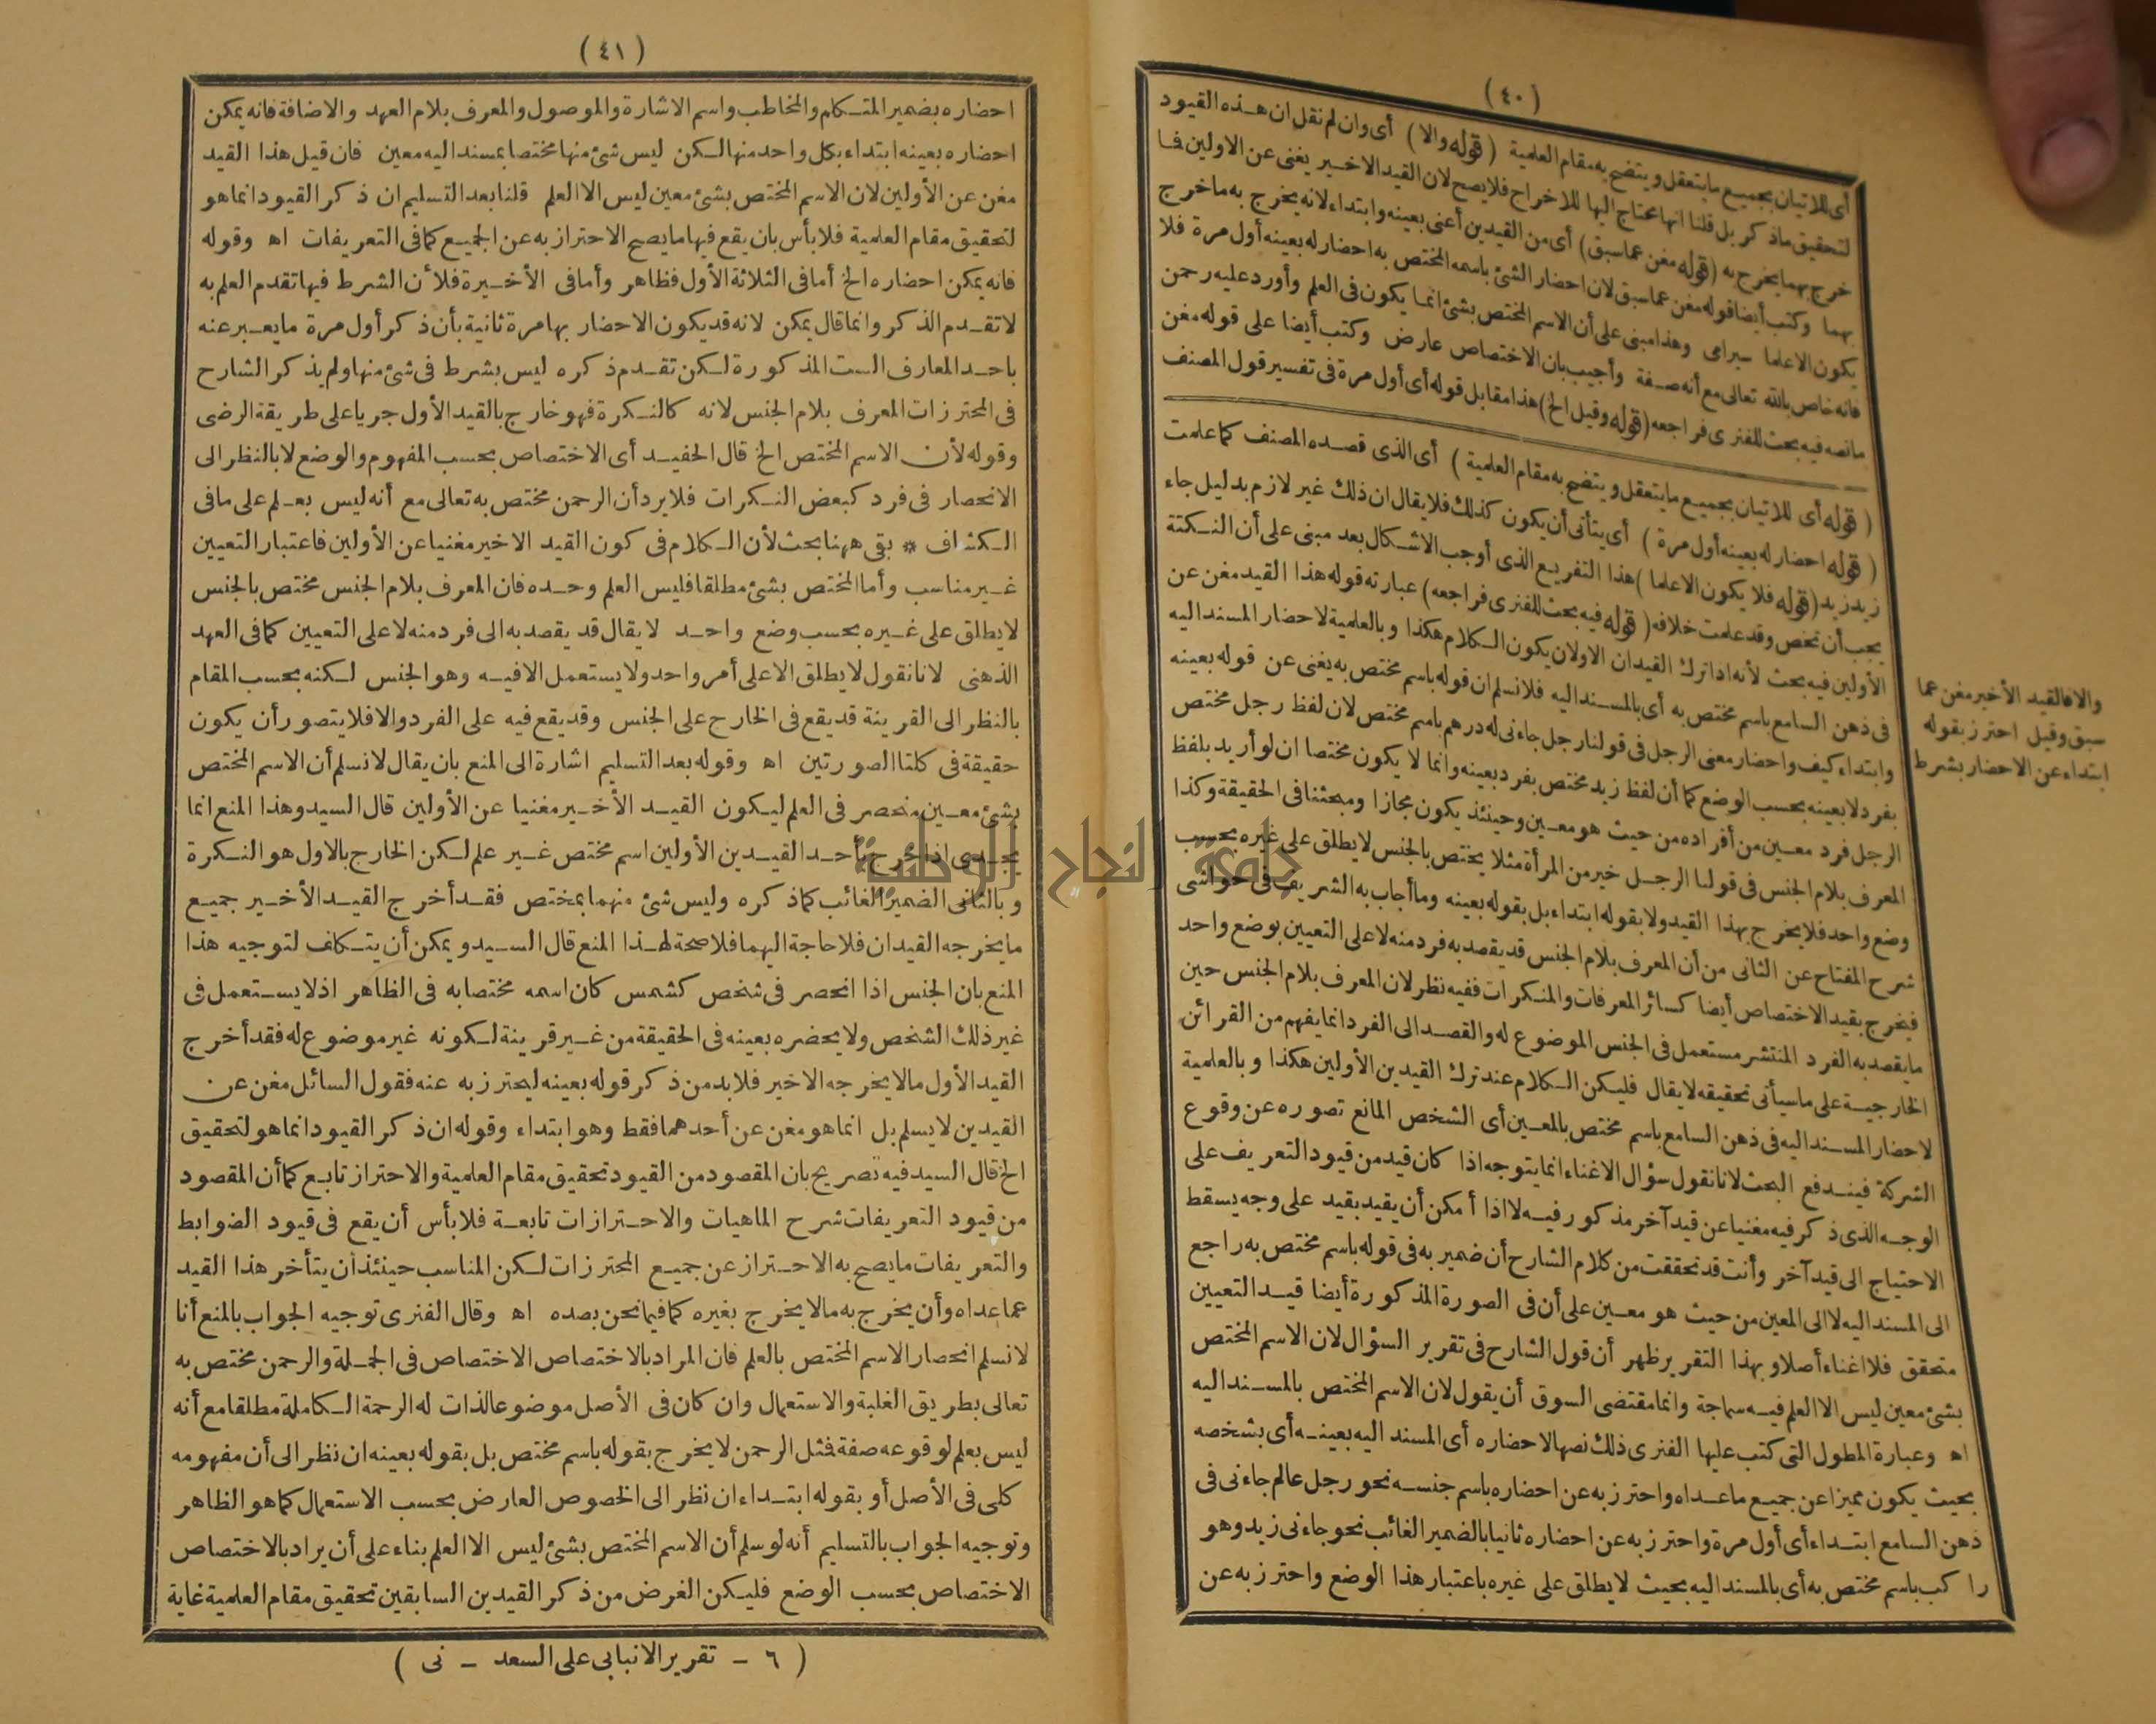 (٤٠)
أى للاتيان بجميع ما يتعقل ويتضح به مقام العلمية (قوله والا) أى وان لم نقل ان هذه القيود
لتحقيق ماذكر بل قلنا انها محتاج اليها للاخراج فلا يصح لان القيد الاخير يغنى عن الاولين فما
خرج بهما يخرج به (قوله مغن عماسبق) أى من القيدين أعنى بعينه وابتداء لانه يخرج به ماخرج
بهما وكتب أيضا قوله مغن عماسبق لان احضار الشئ باسمه المختص به احضار له بعينه أول مرة فلا
يكون الاعلما سيرامى وهذا مبنى على أن الاسم المختص بشئ انما يكون فى العلم وأورد عليه رحمن
فانه خاص بالله تعالى مع أنه صفة وأجيب بان الاختصاص عارض وكتب أيضا على قوله مغن
مانصه فيه بحث للفنرى فراجعه (قوله وقيل الخ) هذا مقابل قوله أى أول مرة فى تفسير قول المصنف
(قوله أى للاتيان بجميع ما يتعقل ويتضح به مقام العلمية) أى الذى قصده المصنف كما علمت
(قوله احضار له بعينه أول مرة) أى يتأتى أن يكون كذلك فلا يقال ان ذلك غير لازم بدليل جاء
زيد زيد (قوله فلا يكون الاعلما) هذا التفريع الذى أوجب الاشكال بعد مبنى على أن النكتة
يجب أن تخص وقد علمت خلافه (قوله فيه بحث للفنرى فراجعه) عبارته قوله هذا القيد مغن عن
الأولين فيه بحث لأنه اذا ترك القيدان الاولان يكون الكلام هكذا وبالعلمية لاحضار المسند اليه
فى ذهن السامع باسم مختص به أى بالمسند اليه فلا نسلم ان قوله باسم مختص به يغنى عن قوله بعينه
وابتداء كيف واحضار معنى الرجل فى قولنا رجل جاءنى له درهم باسم مختص لان لفظ رجل مختص
بفرد لا بعينه بحسب الوضع كما أن لفظ زيد مختص بفرد بعينه وانما لا يكون مختصا ان لو أريد بلفظ
الرجل فرد معين من أفراده من حيث هو معين وحينئذ يكون مجازا ومبحثنا فى الحقيقة وكذا
المعرف بلام الجنس فى قولنا الرجل خير من المرأة مثلا يختص بالجنس لا يطلق على غيره بحسب
وضع واحد فلا يخرج بهذا القيد ولا بقوله ابتداء بل بقوله بعينه وما أجاب به الشريف فى حواشى
شرح المفتاح عن الثانى من أن المعرف بلام الجنس قد يقصد به فرد منه لا على التعيين بوضع واحد
فيخرج بقيد الاختصاص أيضا كسائر المعرفات والمنكرات ففيه نظر لان المعرف بلام الجنس حين
ما يقصد به الفرد المنتشر مستعمل فى الجنس الموضوع له والقصد الى الفرد انما يفهم من القرائن
الخارجية على ما سيأتى تحقيقه لا يقال فليكن الكلام عند ترك القيدين الأولين هكذا وبالعلمية
لاحضار المسند اليه فى ذهن السامع باسم مختص بالمعين أى الشخص المانع تصوره عن وقوع
الشركة فيندفع البحث لانا نقول سؤال الاغناء انما يتوجه اذا كان قيد من قيود التعريف على
الوجه الذى ذكر فيه مغنيا عن قيد آخر مذكور فيه لا اذا أمكن أن يقيد بقيد على وجه يسقط
الاحتياج الى قيد آخر وأنت قد تحققت من كلام الشارح أن ضمير به فى قوله باسم مختص به راجع
الى المسند اليه لا الى المعين من حيث هو معين على أن فى الصورة المذكورة أيضا قيد التعيين
متحقق فلا اغناء أصلا وبهذا التقرير ظهر أن قول الشارح فى تقرير السؤال لان الاسم المختص
بشئ معين ليس الا العلم فيه سماجة وانما مقتضى السوق أن يقول لان الاسم المختص بالمسند اليه
اه وعبارة المطول التى كتب عليها الفنرى ذلك نصها لاحضاره أى المسند اليه بعينه أى بشخصه
بحيث يكون مميزا عن جميع ماعداه واحترز به عن احضاره باسم جنسه نحو رجل عالم جاءنى فى
ذهن السامع ابتداء أى أول مرة واحترز به عن احضاره ثانيا بالضمير الغائب نحو جاءنى زيد وهو
راكب باسم مختص به أى بالمسند اليه بحيث لا يطلق على غيره باعتبار هذا الوضع واحترز به عن
والا فالقيد الأخير مغن عما
سبق وقيل احترز بقوله
ابتداء عن الاحضار بشرط
(٤١)
احضاره بضمير المتكلم والمخاطب واسم الاشارة والموصول والمعرف بلام العهد والاضافة فانه يمكن
احضاره بعينه ابتداء بكل واحد منها لكن ليس شئ منها مختصا بمسند اليه معين فان قيل هذا القيد
مغن عن الأولين لان الاسم المختص بشئ معين ليس الا العلم قلنا بعد التسليم ان ذكر القيود انما هو
لتحقيق مقام العلمية فلا بأس بان يقع فيها ما يصح الاحتراز به عن الجميع كما فى التعريفات اه وقوله
فانه يمكن احضاره الخ أما فى الثلاثة الأول فظاهر وأما فى الأخيرة فلأن الشرط فيها تقدم العلم به
لا تقدم الذكر وانما قال يمكن لانه قد يكون الاحضار بها مرة ثانية بأن ذكر أول مرة ما يعبر عنه
باحد المعارف الست المذكورة لكن تقدم ذكره ليس بشرط فى شئ منها ولم يذكر الشارح
فى المحترزات المعرف بلام الجنس لانه كالنكرة فهو خارج بالقيد الأول جريا على طريقة الرضى
وقوله لأن الاسم المختص الخ قال الحفيد أى الاختصاص بحسب المفهوم والوضع لا بالنظر الى
الانحصار فى فرد كبعض النكرات فلا يرد أن الرحمن مختص به تعالى مع أنه ليس بعلم على ما فى
الكشاف * بقى ههنا بحث لأن الكلام فى كون القيد الاخير مغنيا عن الأولين فاعتبار التعيين
غير مناسب وأما المختص بشئ مطلقا فليس العلم وحده فان المعرف بلام الجنس مختص بالجنس
لا يطلق على غيره بحسب وضع واحد لا يقال قد يقصد به الى فرد منه لا على التعيين كما فى العهد
الذهنى لانا نقول لا يطلق الا على أمر واحد ولا يستعمل الا فيه وهو الجنس لكنه بحسب المقام
بالنظر الى القرينة قد يقع فى الخارج على الجنس وقد يقع فيه على الفرد والا فلا يتصور أن يكون
حقيقة فى كلتا الصورتين اه وقوله بعد التسليم اشارة الى المنع بان يقال لا نسلم أن الاسم المختص
بشئ معين منحصر فى العلم ليكون القيد الأخير مغنيا عن الأولين قال السيد وهذا المنع انما
يجدى اذا خرج بأحد القيدين الأولين اسم مختص غير علم لكن الخارج بالاول هو النكرة
وبالثانى الضمير الغائب كما ذكره وليس شئ منهما بمختص فقد أخرج القيد الأخير جميع
ما يخرجه القيدان فلا حاجة اليهما فلا صحة لهذا المنع قال السيد ويمكن أن يتكلف لتوجيه هذا
المنع بان الجنس اذا انحصر فى شخص كشمس كان اسمه مختصا به فى الظاهر اذ لا يستعمل فى
غير ذلك الشخص ولا يحضره بعينه فى الحقيقة من غير قرينة لكونه غير موضوع له فقد أخرج
القيد الأول مالا يخرجه الاخير فلا بد من ذكر قوله بعينه ليحترز به عنه فقول السائل مغن عن
القيدين لا يسلم بل انما هو مغن عن أحدهما فقط وهو ابتداء وقوله ان ذكر القيود انما هو لتحقيق
الخ قال السيد فيه تصريح بان المقصود من القيود تحقيق مقام العلمية والاحتراز تابع كما أن المقصود
من قيود التعريفات شرح الماهيات والاحترازات تابعة فلا بأس أن يقع فى قيود الضوابط
والتعريفات ما يصح به الاحتراز عن جميع المحترزات لكن المناسب حينئذ أن يتأخر هذا القيد
عما عداه وأن يخرج به مالا يخرج بغيره كما فيما نحن بصدده اه وقال الفنرى توجيه الجواب بالمنع أنا
لا نسلم انحصار الاسم المختص بالعلم فان المراد بالاختصاص الاختصاص فى الجملة والرحمن مختص به
تعالى بطريق الغلبة والاستعمال وان كان فى الأصل موضوعا لذات له الرحمة الكاملة مطلقا مع أنه
ليس بعلم لوقوعه صفة فمثل الرحمن لا يخرج بقوله باسم مختص بل بقوله بعينه ان نظر الى أن مفهومه
كلى فى الأصل أو بقوله ابتداء ان نظر الى الخصوص العارض بحسب الاستعمال كما هو الظاهر
وتوجيه الجواب بالتسليم أنه لو سلم أن الاسم المختص بشئ ليس الا العلم بناء على أن يراد بالاختصاص
الاختصاص بحسب الوضع فليكن الغرض من ذكر القيدين السابقين تحقيق مقام العلمية غاية
(٦ - تقرير الانبابى على السعد - نى)
جامعة النجاح الوطنية